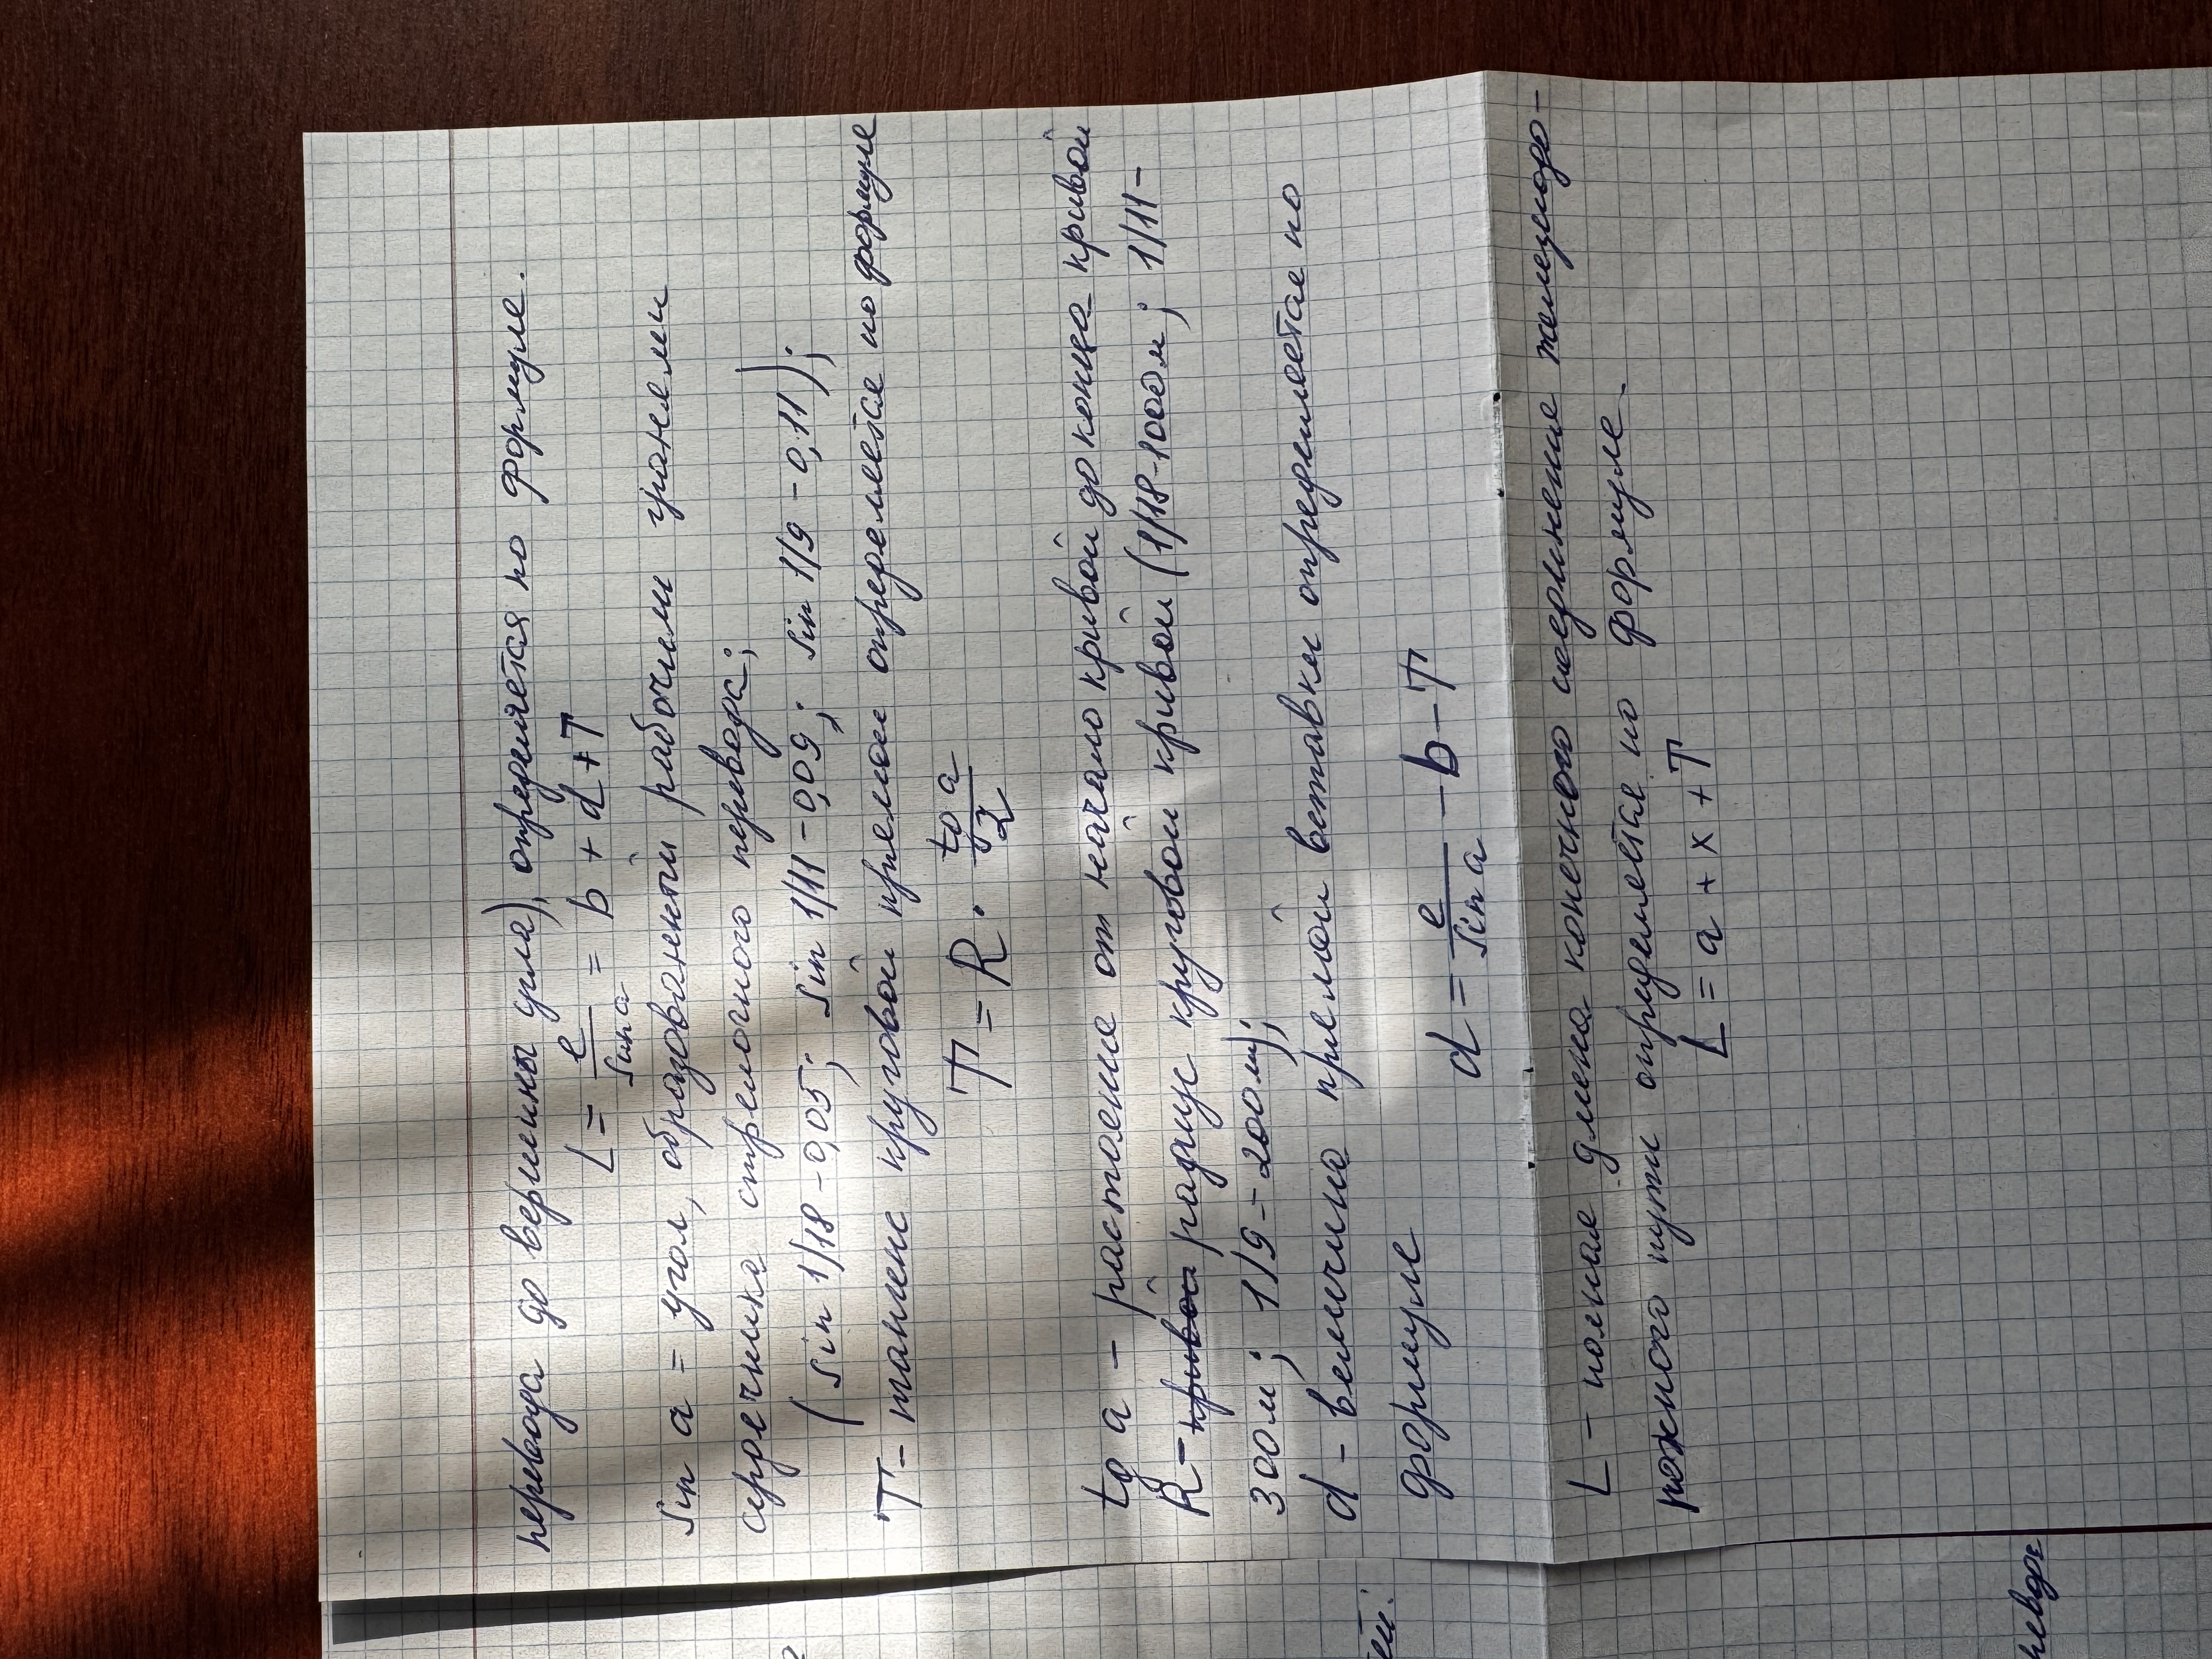 перевода до вершины угла), определяется по формуле.
L = e/sin a = b + d + T
sin a = угол, образованный рабочими гранями
сердечника стрелочного перевода;
(sin 1/18 - 0,05; sin 1/11 - 0,09; sin 1/9 - 0,11);
T - тангенс круговой прямой определяется по формуле
T = R · tg a/2
tg a - растояние от начало кривой до конца кривой
R - радиус круговой кривой (1/18-1000м; 1/11-
300м; 1/9-200м);
d - величина прямой вставки определяется по
формуле
d = e/sin a - b - T
L - полная длина конечного соединение железнодо-
рожного пути определяется по формуле.
L = a + x + T
неводе